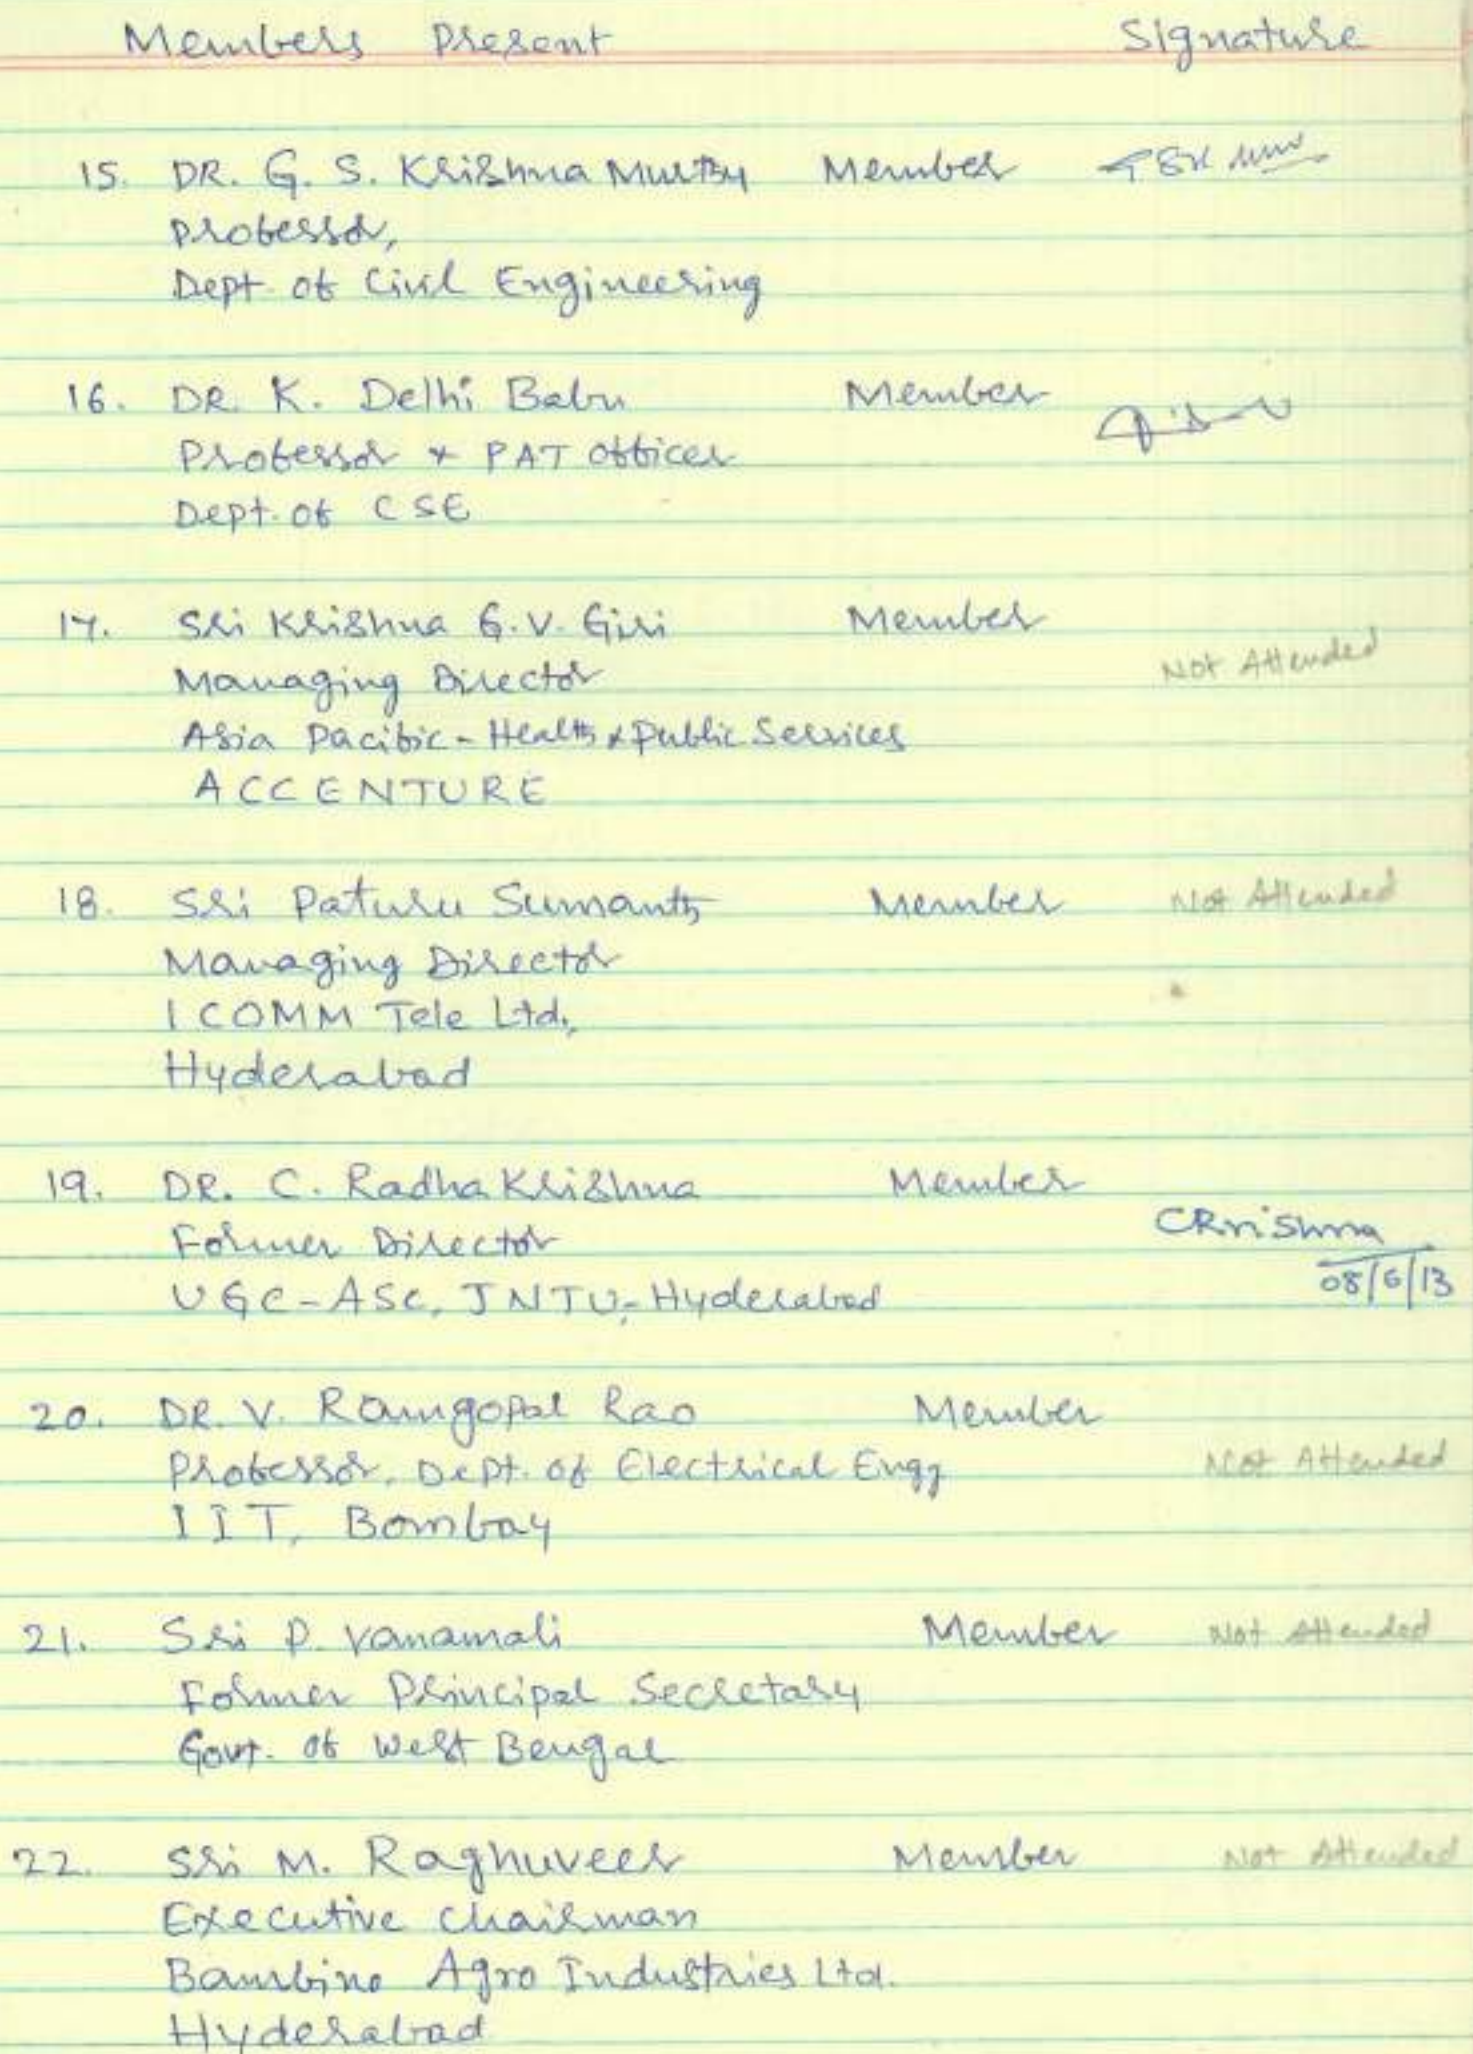 Members Present Signature
15. DR. G. S. Krishna Murthy Member
Professor,
Dept of Civil Engineering
16. DR. K. Delhi Babu Member
Professor & PAT Officer
Dept. of CSE
17. Sri Krishna G.V. Giri Member
Not Attended
Managing Director
Asia Pacific - Health & Public Services
ACCENTURE
18. Sri Paturu Sumanth Member Not Attended
Managing Director
ICOMM Tele Ltd.,
Hyderabad
19. DR. C. Radha Krishna Member
CRrishna
Former Director
08/6/13
UGC-ASC, JNTU-Hyderabad
20. DR. V. Ramgopal Rao Member
Professor, Dept. of Electrical Engg Not Attended
IIT, Bombay
21. Sri P. Vanamali Member Not Attended
Former Principal Secretary
Govt. of West Bengal
22. Sri M. Raghuveer Member Not Attended
Executive Chairman
Bambino Agro Industries Ltd.
Hyderabad